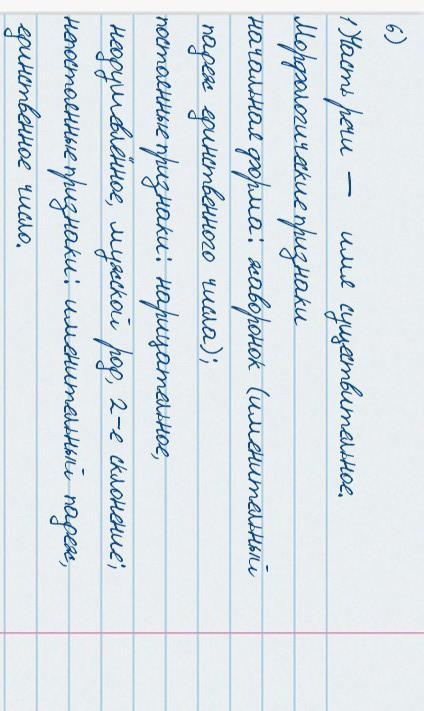 6)
1) Часть речи — имя существительное.
Морфологические признаки
начальная форма: жаворонок (именительный
падеж единственного числа);
постоянные признаки: нарицательное,
неодушевлённое, мужской род, 2-е склонение;
непостоянные признаки: именительный падеж,
единственное число.